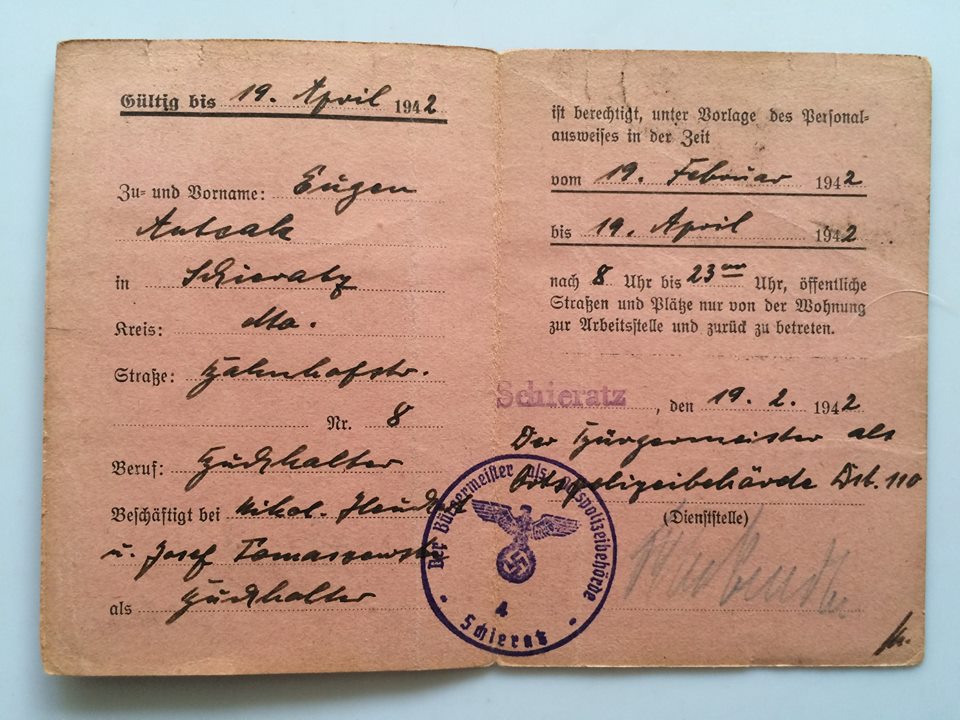 Gültig bis 19. April 1942
Zu- und Vorname: Eugen
Antczak
in Schieratz
Kreis: dto.
Straße: Bahnhofstr.
Nr. 8
Beruf: Buchhalter
Beschäftigt bei Nikol.
u. Josef Tomaszewski
als Buchhalter
ist berechtigt, unter Vorlage des Personal-
ausweises in der Zeit
vom 19. Februar 1942
bis 19. April 1942
nach 8 Uhr bis 23 Uhr, öffentliche
Straßen und Plätze nur von der Wohnung
zur Arbeitsstelle und zurück zu betreten.
Schieratz, den 19. 2. 1942
Der Bürgermeister als
Ortspolizeibehörde Dst. 110
(Dienststelle)
Der Bürgermeister als Ortspolizeibehörde
4
Schieratz